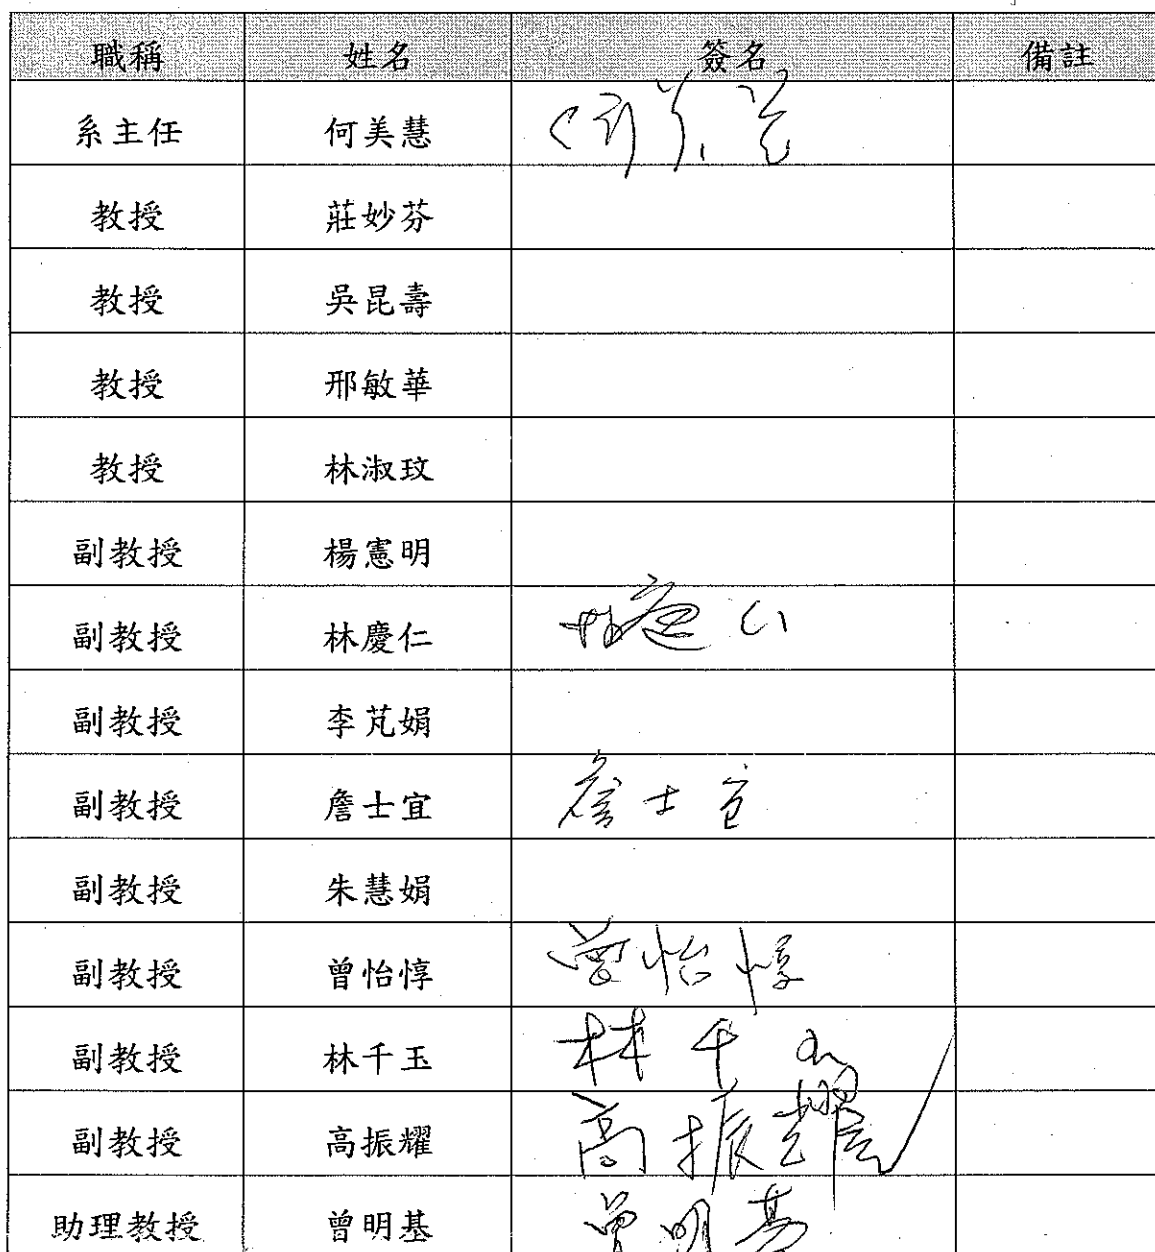 職稱 姓名 簽名 備註
系主任 何美慧 何美慧
教授 莊妙芬
教授 吳昆壽
教授 邢敏華
教授 林淑玟
副教授 楊憲明
副教授 林慶仁 林慶仁
副教授 李芃娟
副教授 詹士宜 詹士宜
副教授 朱慧娟
副教授 曾怡惇 曾怡惇
副教授 林千玉 林千玉
副教授 高振耀 高振耀
助理教授 曾明基 曾明基